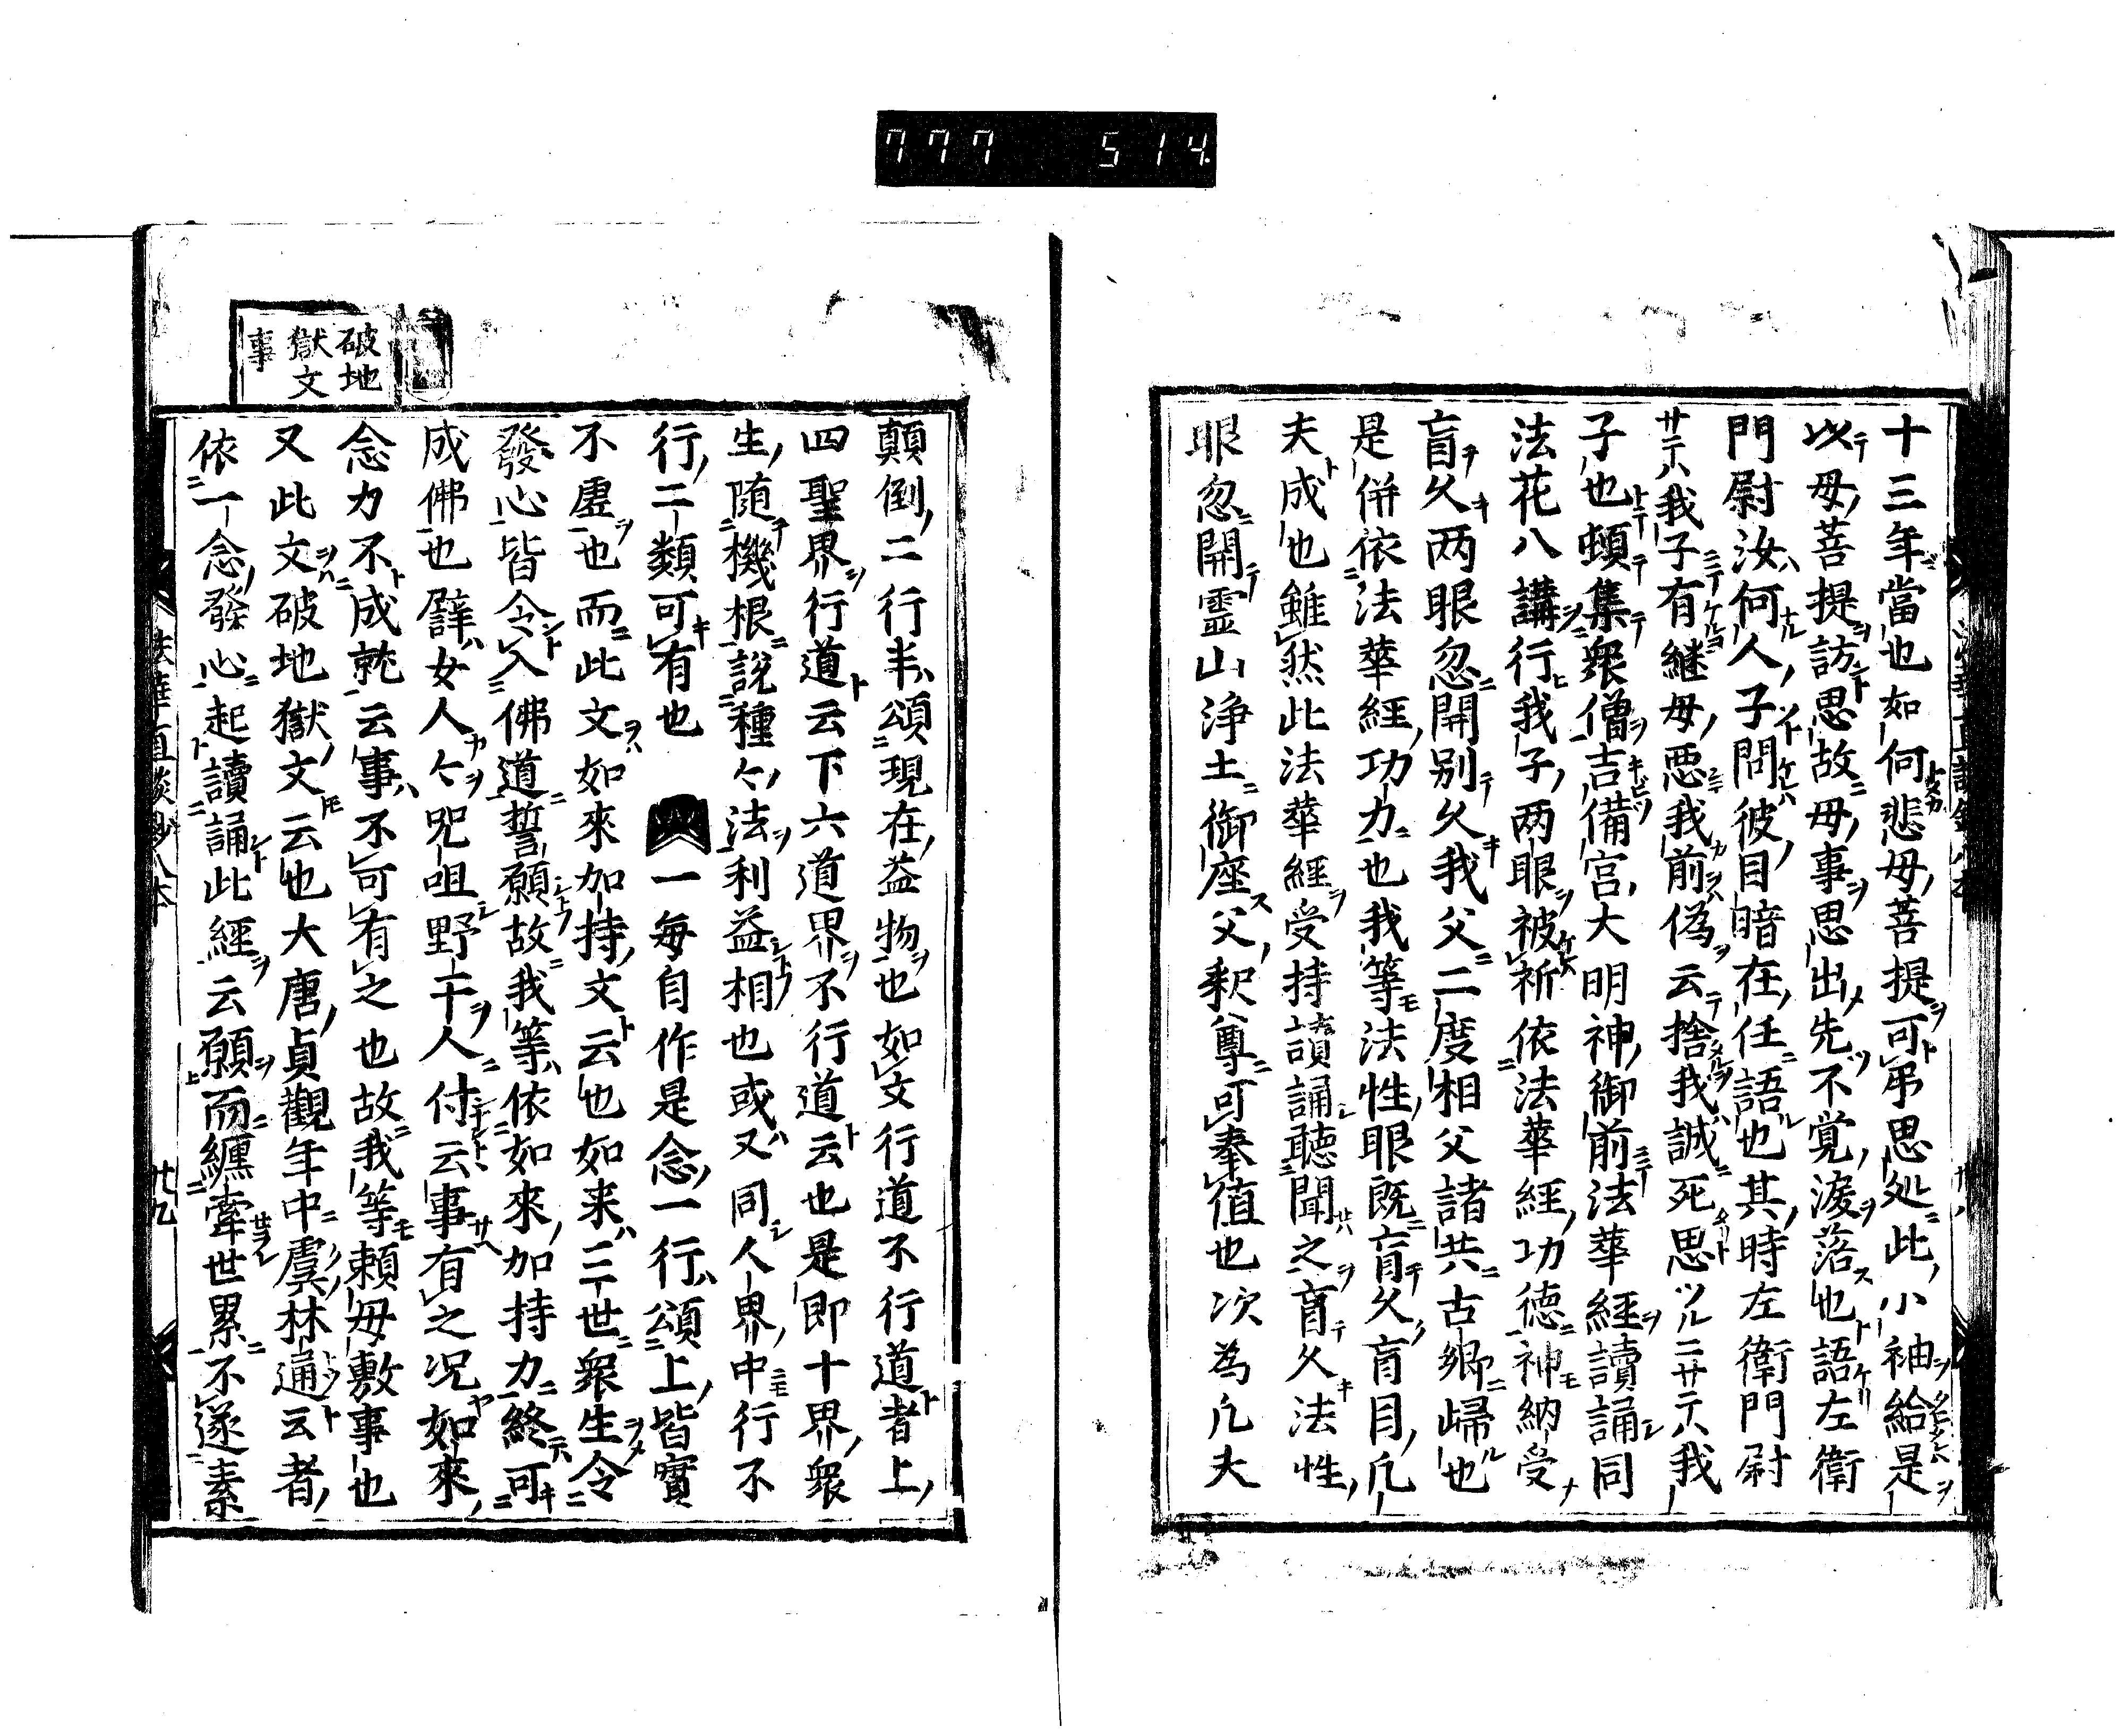 777 514
十三年當也如何悲母菩提可吊思処此小袖給是
以母菩提訪思故母事思出先不覚涙落也語左衛
門尉汝何人子問彼目暗在任語也其時左衛門尉
サテハ我子有継母悪我前偽云捨我誠死思ツルニサテハ我
子也頓集衆僧吉備宮大明神御前法華経讀誦同
法花八講行我子两眼被祈依法華経功德神納受
盲久两眼忽開別久我父二度相父諸共古郷歸也
是併依法華経功力也我等法性眼既盲久盲目凡
夫成也雖然此法華経受持讀誦聴聞之盲久法性
眼忽開霊山浄土御座父釈尊可奉値也次為凡夫
顛倒二行半頌現在益物也如文行道不行道者上
四聖界行道云下六道界不行道云也是即十界衆
生随機根説種々法利益相也或又同人界中行不
行二類可有也 一毎自作是念一行頌上皆實
不虚也而此文如来加持文云也如来三世衆生令
發心皆令入佛道誓願故我等依如來加持力終可
成佛也譬女人々咒咀野干人付云事有之况如來
念力不成就云事不可有之也故我等頼母敷事也
又此文破地獄文云也大唐貞觀年中虞林通云者
依一念發心起讀誦此經云願而纏牽世累不遂素
破地
獄文
事
法華直談鈔八本 廿九